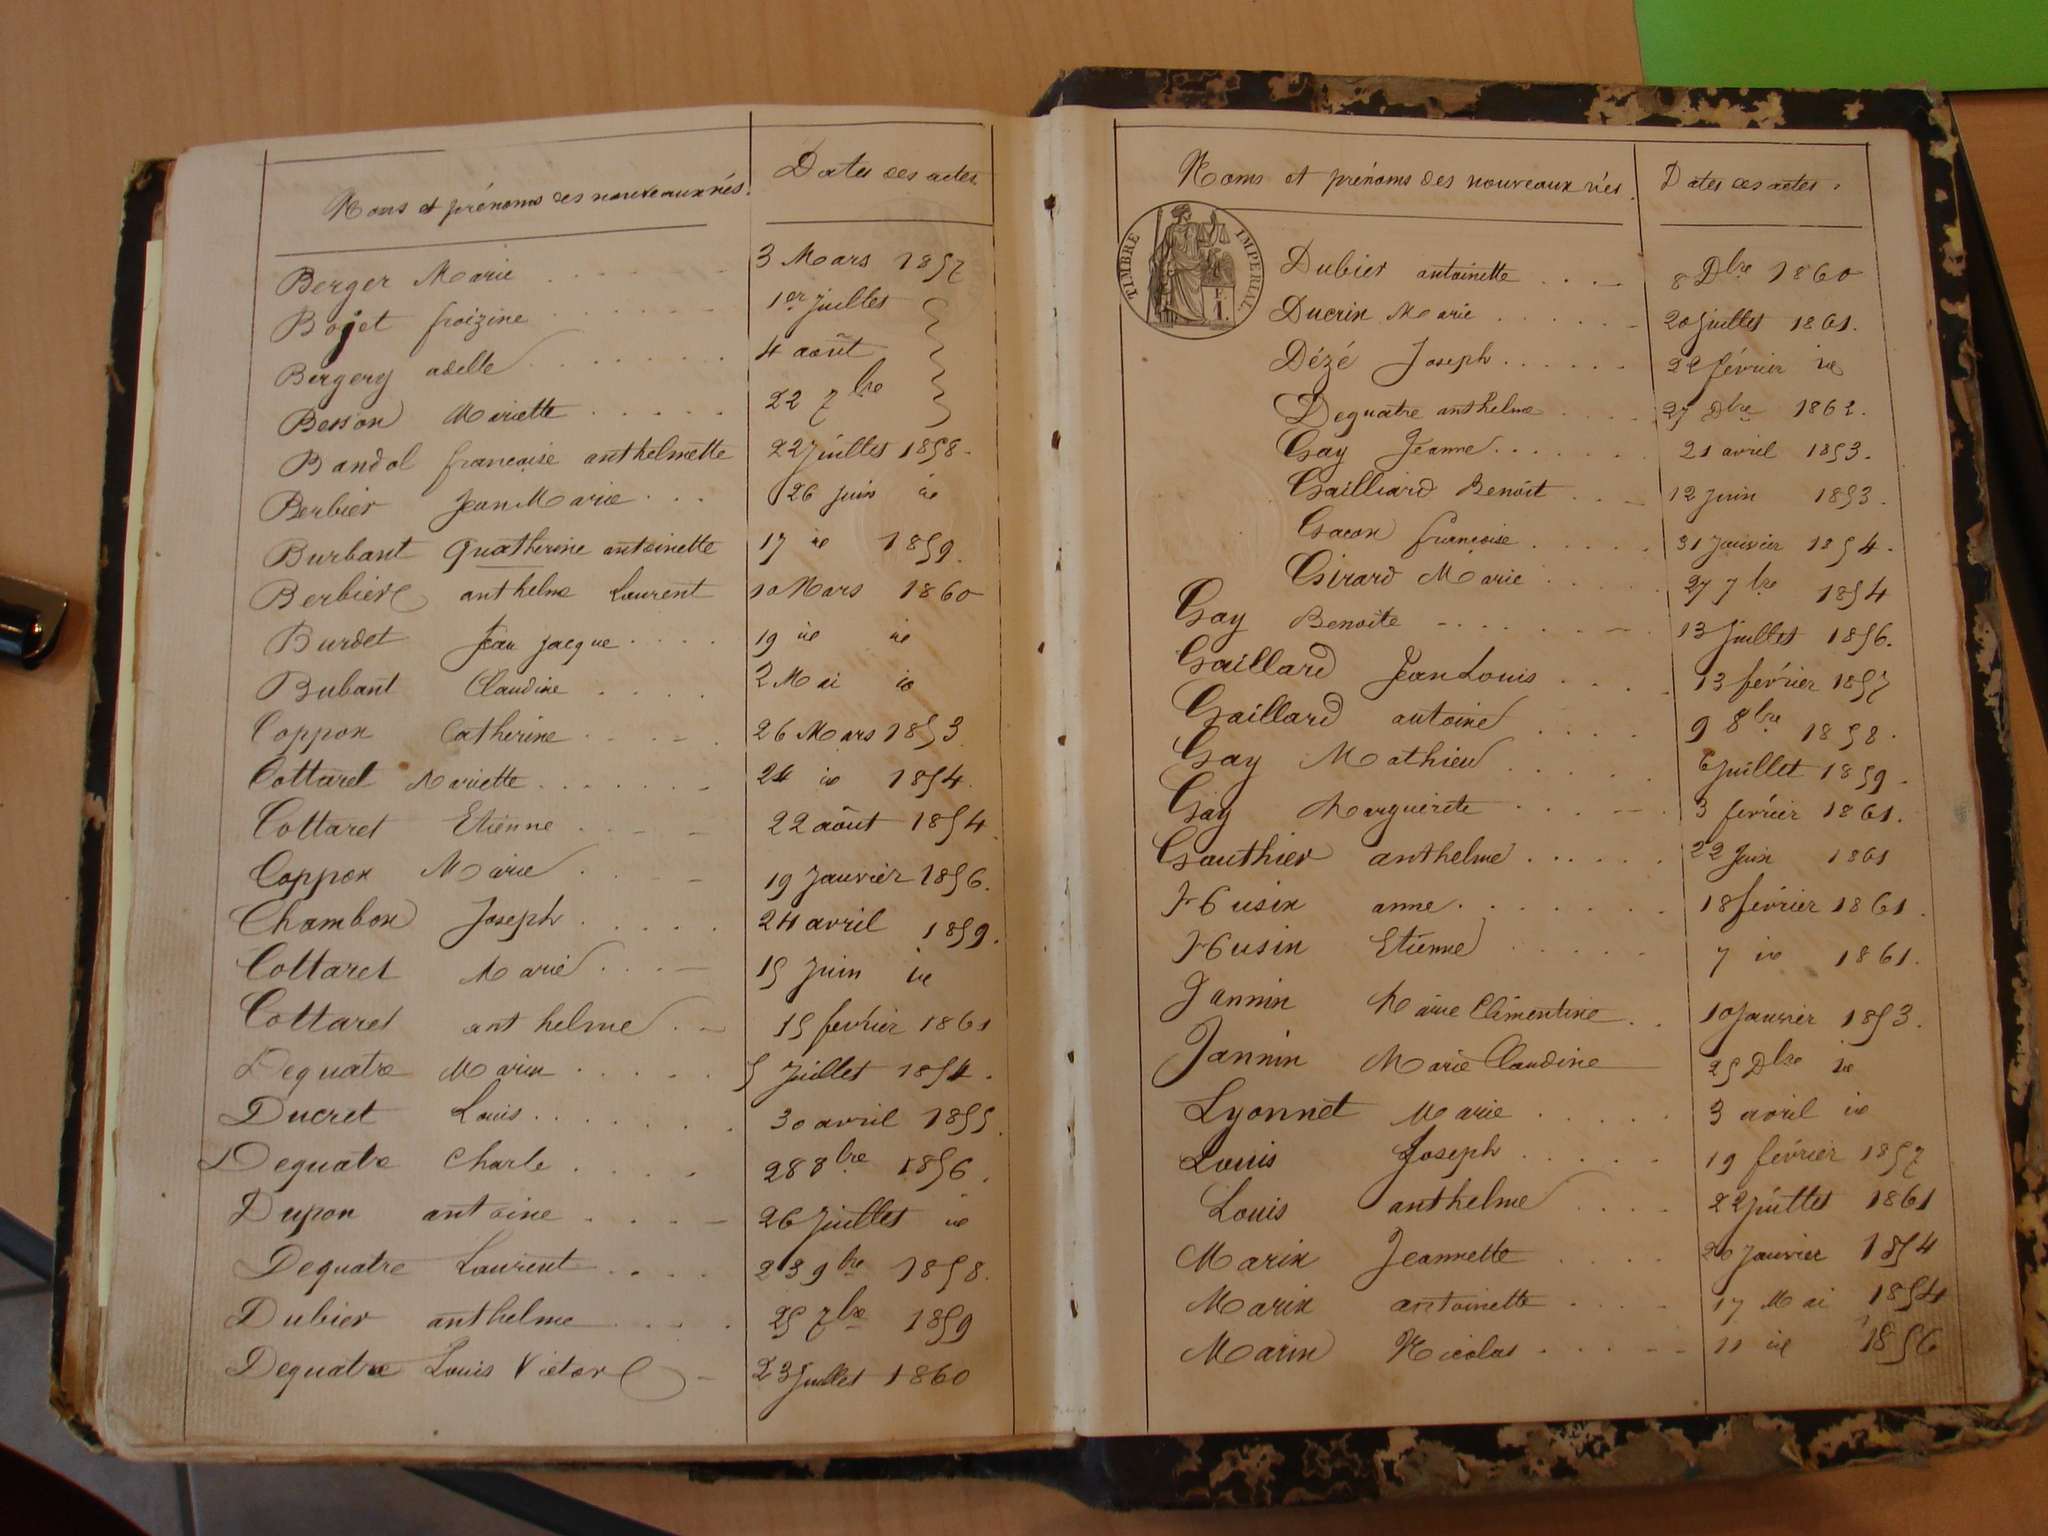 Noms et prénoms des nouveaux nés. Dates des actes.
Berger Marie 3 Mars 1857
Bojet froizine 1er juillet
Bergery adelle 4 août
Besson Mariette 22 7bre
Bandol françoise anthelmette 22 juillet 1858.
Berbier Jean Marie 26 juin id
Burbant Quatherine antoinette 17 id 1859.
Berbier anthelme Laurent 10 Mars 1860
Burdet Jean jacque 19 id id
Bubant Claudine 2 Mai id
Coppon Catherine 26 Mars 1853
Cottaret Mariette 24 id 1854.
Cottaret Etienne 22 août 1854.
Coppon Marie 19 Janvier 1856.
Chambon Joseph 24 avril 1859.
Cottaret Marie 15 Juin id
Cottaret anthelme 15 fevrier 1861
Dequatre Marin 5 Juillet 1854.
Ducret Louis 30 avril 1855.
Dequatre Charle 28 8bre 1856.
Dupon antoine 26 Juillet id
Dequatre Laurent 23 9bre 1858.
Dubier anthelme 25 7bre 1859
Dequatre Louis Victor 23 Juillet 1860
Noms et prénoms des nouveaux nés. Dates des actes.
TIMBRE IMPERIAL
Dubier antoinette 8 Dbre 1860
Ducrin Marie 20 juillet 1861.
Dézé Joseph 22 février id
Dequatre anthelme 27 Dbre 1862.
Gay Jeanne 21 avril 1853.
Gailliard Benoit 12 Juin 1853.
Gacon françoise 31 Janvier 1854.
Girard Marie 27 7bre 1854
Gay Benoite 13 Juillet 1856.
Gaillard Jean Louis 13 février 1857
Gaillard antoine 9 8bre 1858.
Gay Mathieu 6 juillet 1859.
Gay Marguerite 3 fevrier 1861.
Gauthier anthelme 22 Juin 1861
Husin anne 18 février 1861.
Husin Etienne 7 id 1861.
Jannin Marie Clémentine 10 Janvier 1853.
Jannin Marie Claudine 25 Dbre id
Lyonnet Marie 3 avril id
Louis Joseph 19 février 1857
Louis anthelme 22 Juillet 1861
Marin Jeannette 20 Janvier 1854
Marin antoinette 17 Mai 1854
Marin Nicolas 11 id 1856